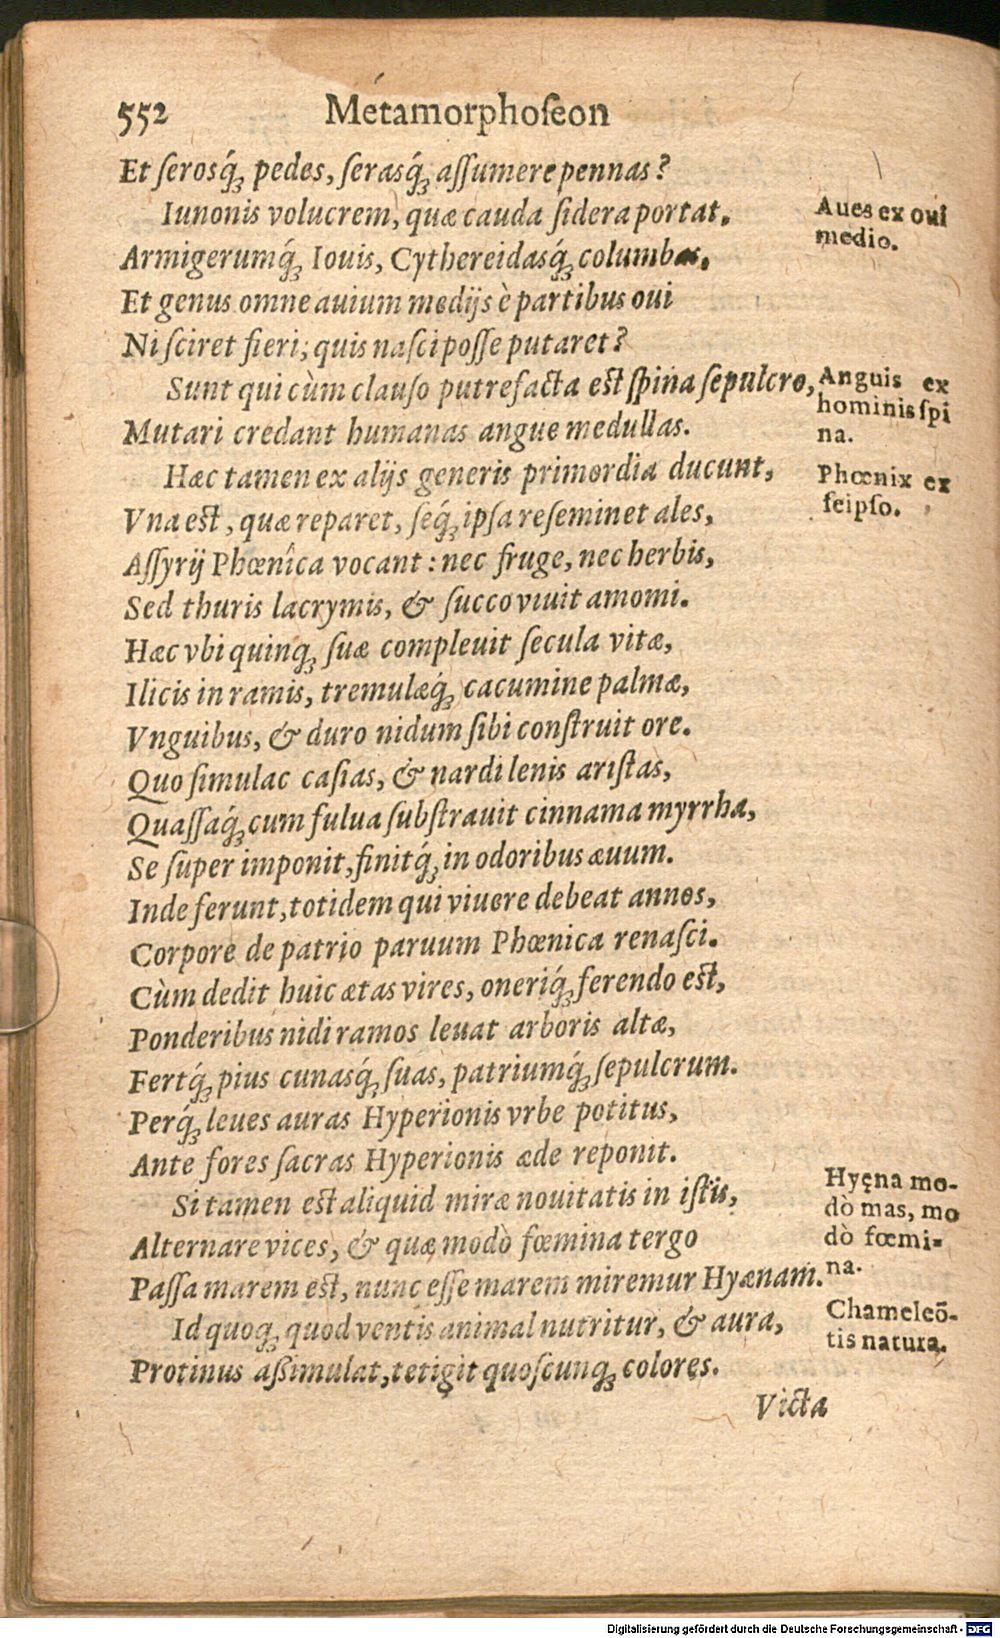 552 Metamorphoſeon
Et ſerosq́ꝫ pedes, ſerasq́ꝫ aſſumere pennas?
Iunonis volucrem, quæ cauda ſidera portat,
Aues ex oui
medio.
Armigerumq́ꝫ Iouis, Cythereidasq́ꝫ columbas,
Et genus omne auium medijs è partibus oui
Ni ſciret fieri; quis naſci poſſe putaret?
Sunt qui cùm clauſo putrefacta eſt ſpina ſepulcro,
Anguis ex
hominis ſpi
na.
Mutari credant humanas angue medullas.
Hæc tamen ex alijs generis primordia ducunt,
Phœnix ex
ſeipſo.
Vna eſt, quæ reparet, ſeq́ꝫ ipſa reſeminet ales,
Aſſyrij Phœnîca vocant: nec fruge, nec herbis,
Sed thuris lacrymis, & ſucco viuit amomi.
Hæc vbi quinqꝫ ſuæ compleuit ſecula vitæ,
Ilicis in ramis, tremulæq́ꝫ cacumine palmæ,
Vnguibus, & duro nidum ſibi conſtruit ore.
Quo ſimulac caſias, & nardi lenis ariſtas,
Quaſſaq́ꝫ cum fulua ſubſtrauit cinnama myrrha,
Se ſuper imponit, finitq́ꝫ in odoribus æuum.
Inde ferunt, totidem qui viuere debeat annos,
Corpore de patrio paruum Phœnica renaſci.
Cùm dedit huic ætas vires, oneriq́ꝫ ferendo eſt,
Ponderibus nidi ramos leuat arboris altæ,
Fertq́ꝫ pius cunasq́ꝫ ſuas, patriumq́ꝫ ſepulcrum.
Perq́ꝫ leues auras Hyperionis vrbe potitus,
Ante fores ſacras Hyperionis æde reponit.
Si tamen eſt aliquid miræ nouitatis in iſtis,
Hyęna mo-
dò mas, mo
dò fœmi-
na.
Alternare vices, & quæ modò fœmina tergo
Paſſa marem eſt, nunc eſſe marem miremur Hyænam.
Id quoqꝫ quod ventis animal nutritur, & aura,
Chameleō-
tis natura.
Protinus aßimulat, tetigit quoſcunqꝫ colores.
Victa
Digitalisierung gefördert durch die Deutsche Forschungsgemeinschaft - DFG